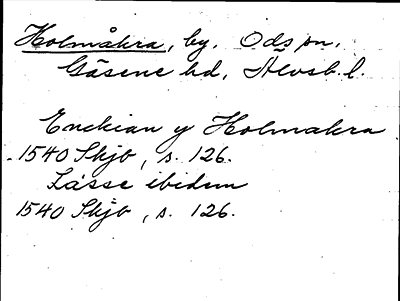 Holmåkra, by, Ods sn.
Gäsene hd, Älvsb. l.
Enckian y Holmakra
1540 Skjb, s. 126.
Lasse ibidem
1540 Skjb, s. 126.